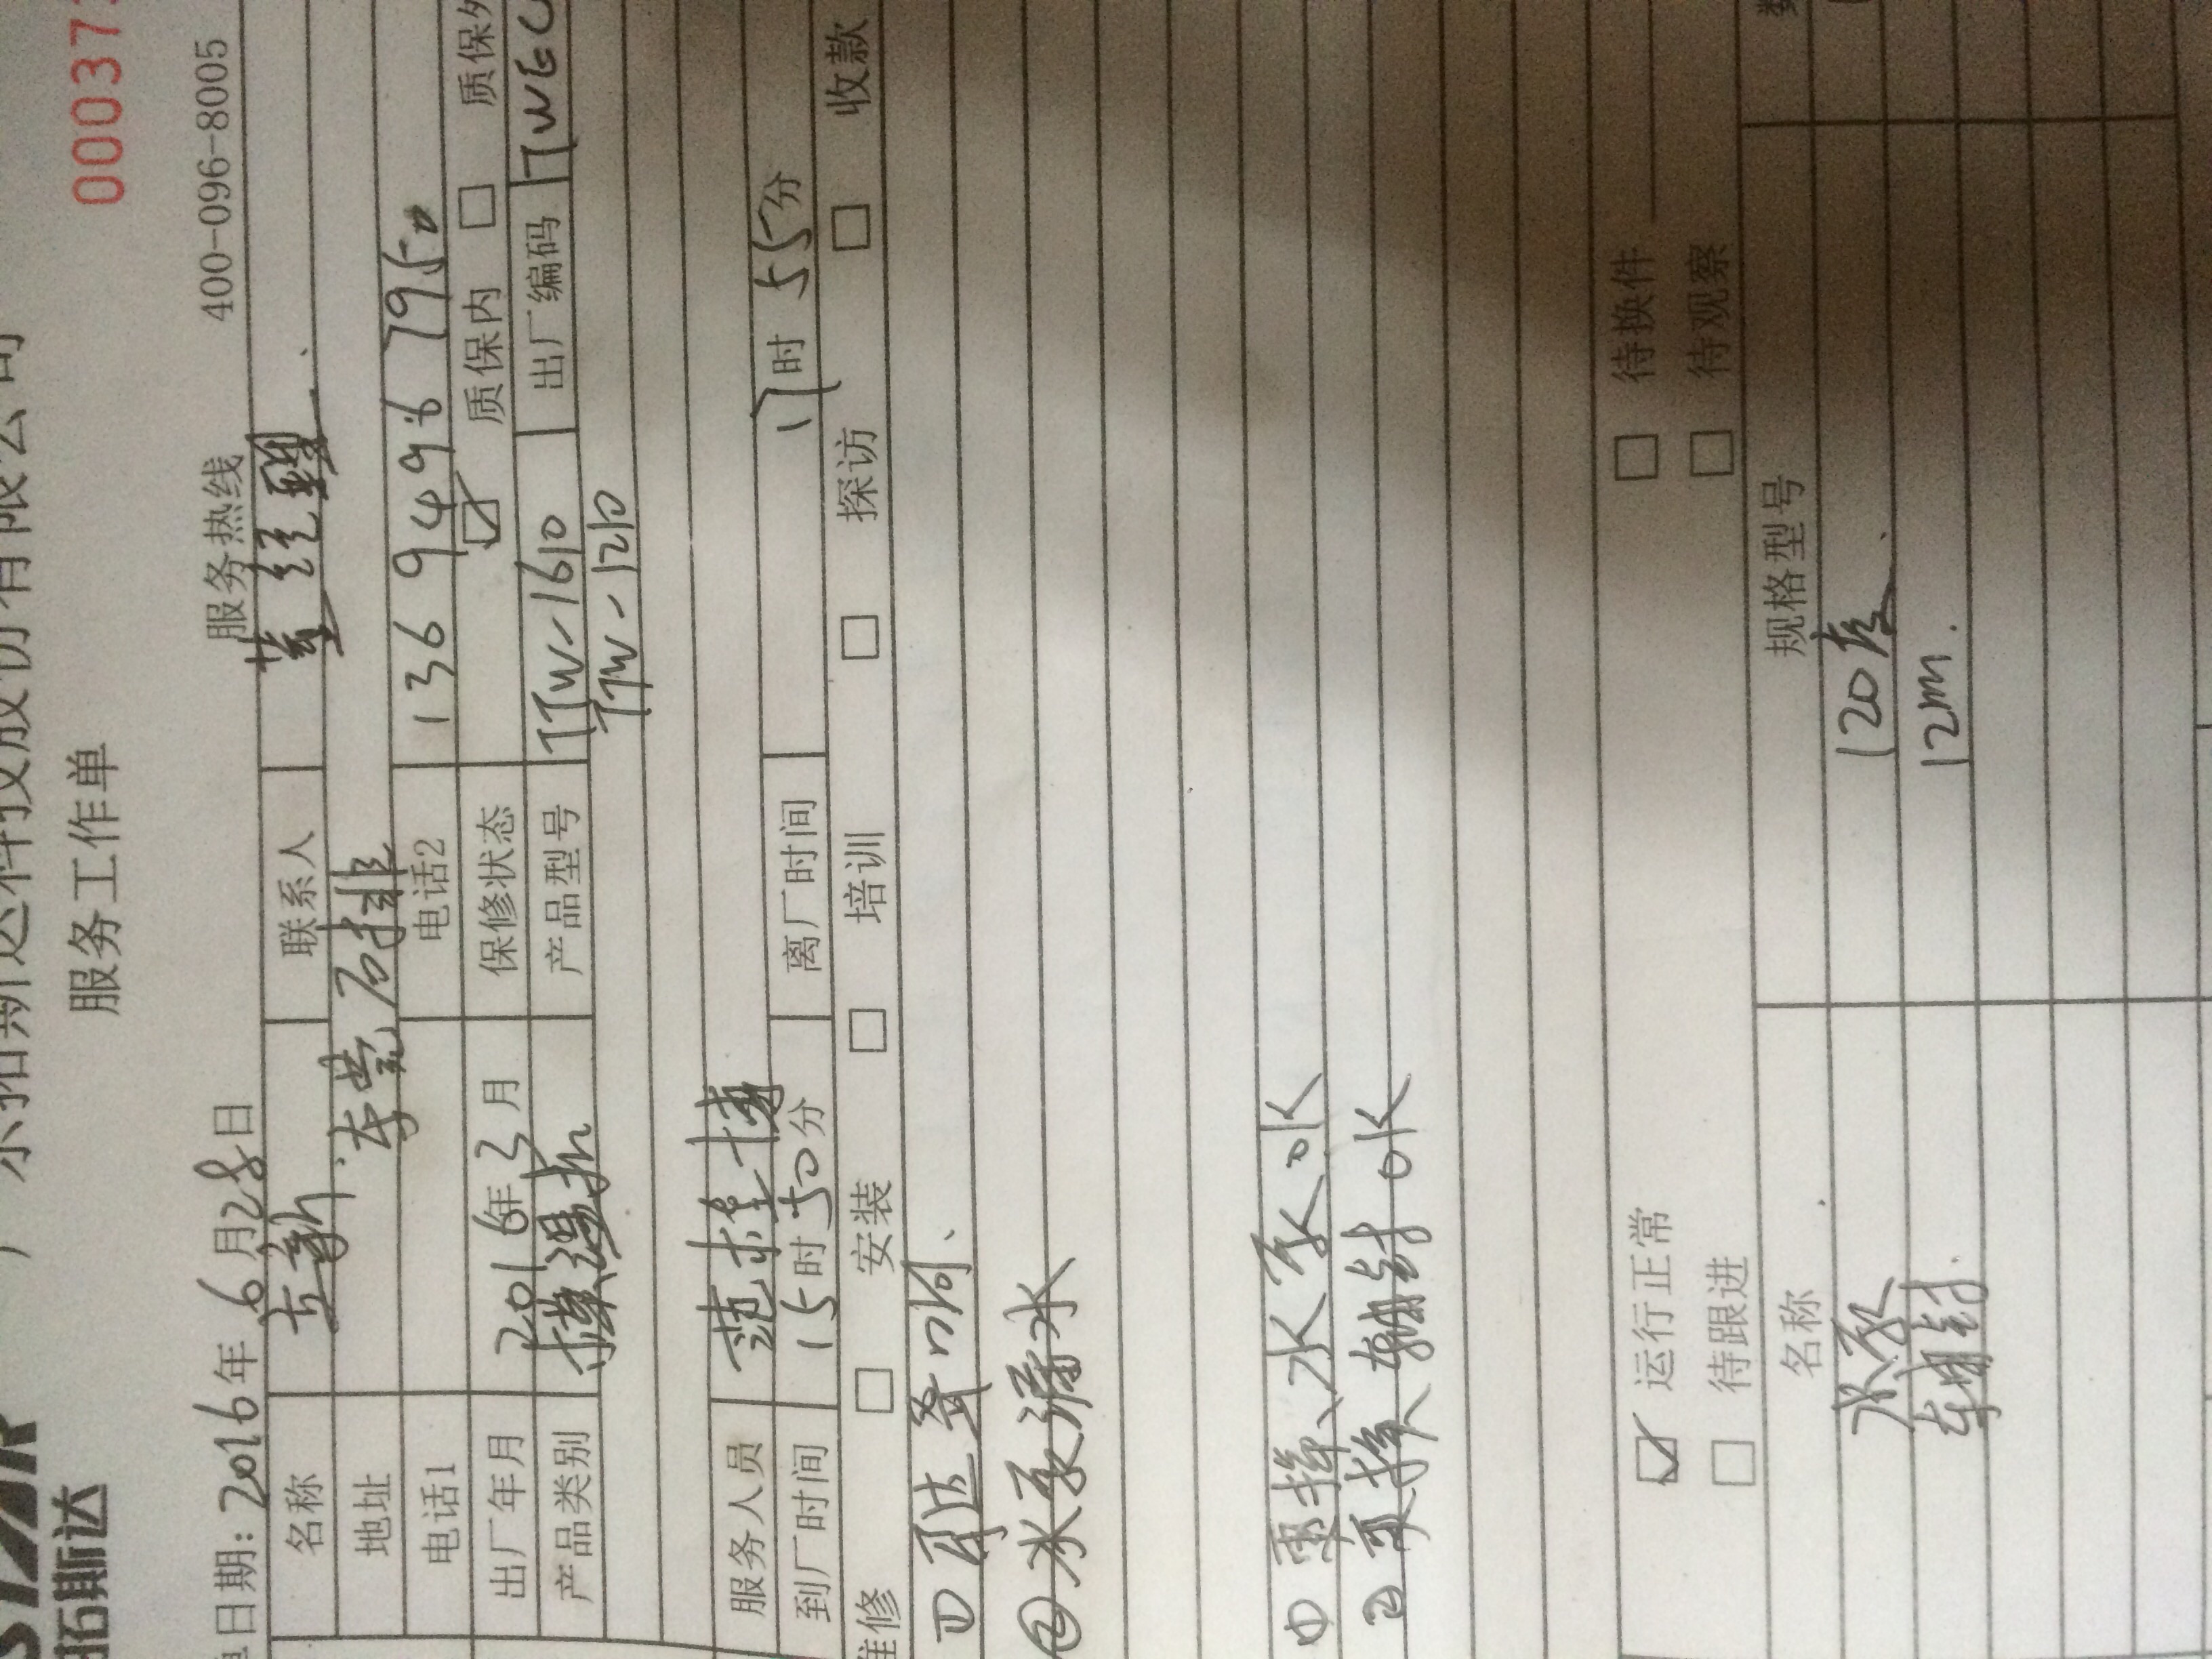 STAR
拓斯达
广东拓斯达科技股份有限公司
服务工作单
00037
日期: 2016年6月28日 服务热线 400-096-8005
名称 立新 联系人
地址 东莞石排
电话1 电话2 136 9496 7950
出厂年月 2016年3月 保修状态 ☑ 质保内 □ 质保外
产品类别 模温机 产品型号 TTW-1610 出厂编码 TWGC
TTW-1210
服务人员 范桂博
到厂时间 15时50分 离厂时间 17时55分
维修 □ 安装 □ 培训 □ 探访 □ 收款
① 马达异响、
②水泵漏水
① 更换、水泵OK
② 更换、轴封OK
☑ 运行正常 □ 待换件
□ 待跟进 □ 待观察
名称 规格型号 数
水泵 120度、
轴封 12m.